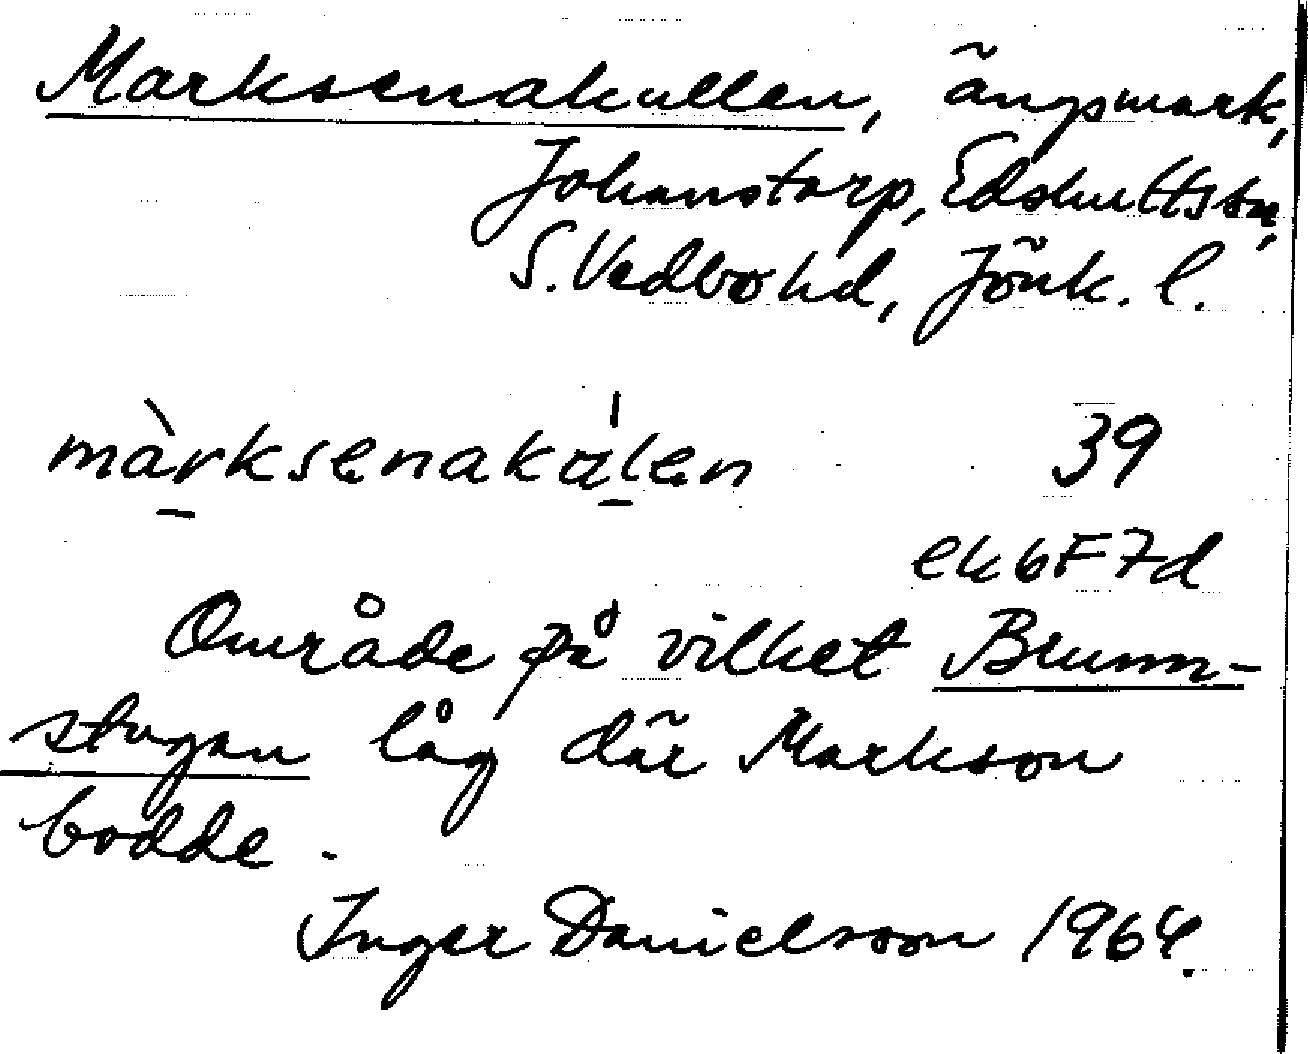 Marksenakullen, ängsmark,
Johanstorp, Edshults sn,
S. Vedbo hd, Jönk. l.
màrksenakálen 39
ek 6F7d
Område på vilket Brunn-
stugan låg där Markson
bodde.
Inger Danielsson 1964.